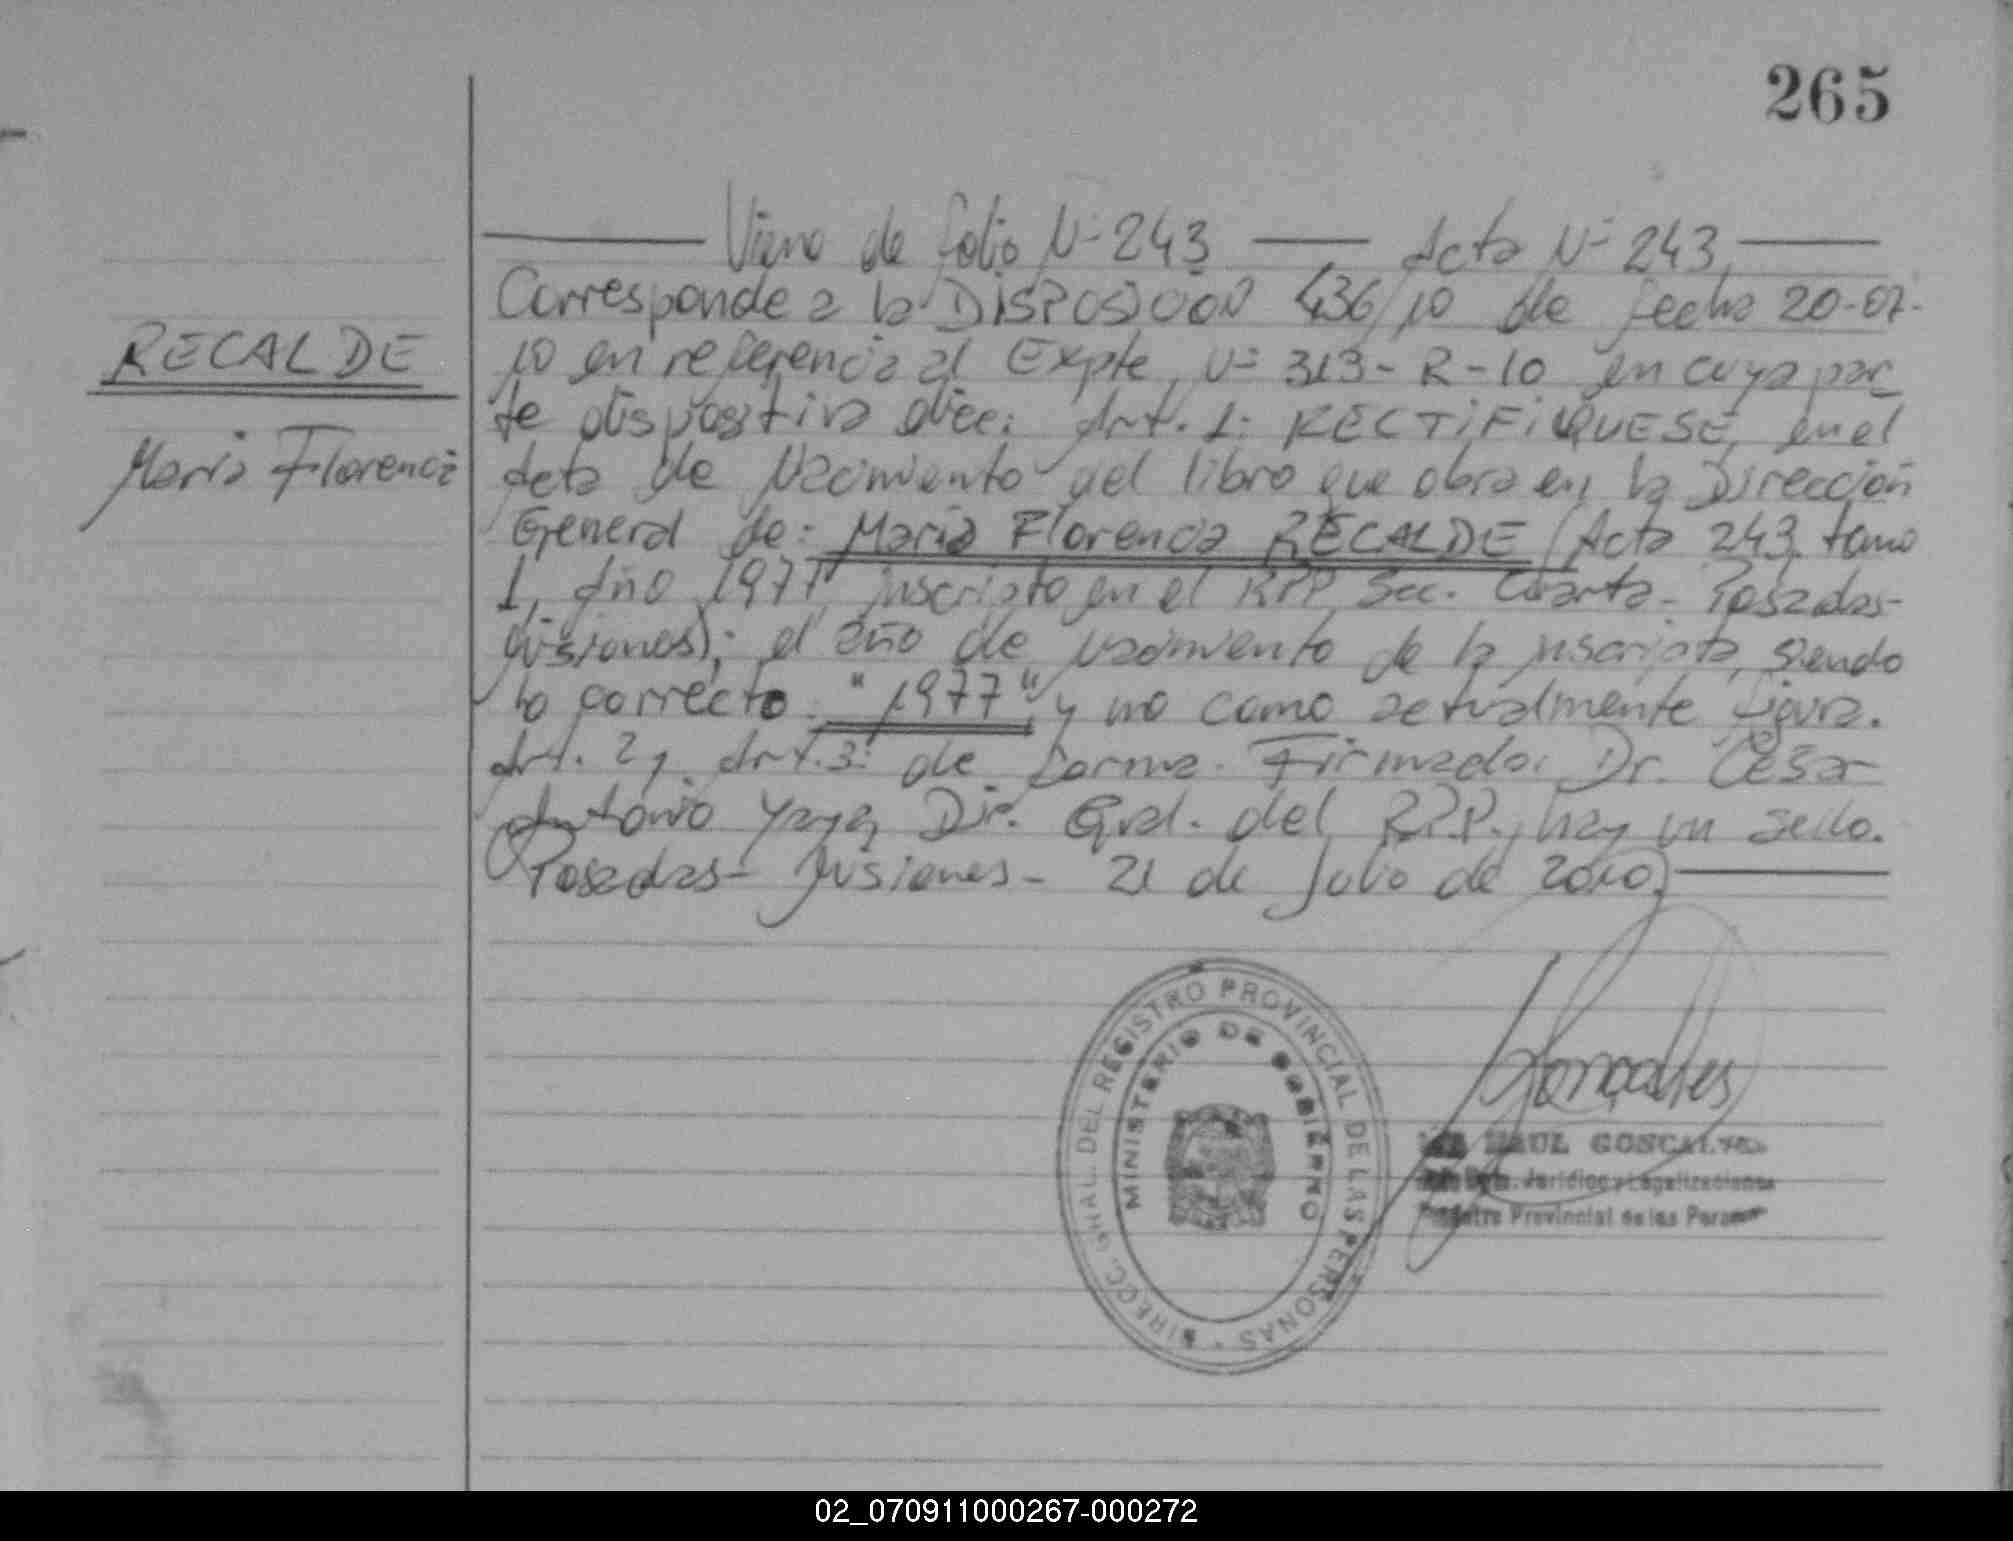 265
Viene de folio Nº 243 Acta Nº 243
Corresponde a la DISPOSICION 436/10 de fecha 20-07-
10 en referencia al Expte, Nº 313-R-10 en cuya par
te dispositiva dice: Art. 1: RECTIFIQUESE, en el
Acta de Nacimiento del libro que obra en la Dirección
General de: María Florencia RECALDE (Acta 243, tomo
1, Año 1977, inscripto en el RPP, Sec. Cuarta - Posadas-
Misiones); el año de nacimiento de la inscripta, siendo
lo correcto: "1977" y no como actualmente figura.
Art. 2 y Art. 3: de forma. Firmado: Dr. César
Antonio Yaya, Dir. Gral. del R.P.P. hay un sello.
Posadas- Misiones- 21 de Julio de 2010
RECALDE
María Florencia
DIRECC. GRAL. DEL REGISTRO PROVINCIAL DE LAS PERSONAS
MINISTERIO DE GOBIERNO
Goncalves
RAUL GONCALVES
Dpto. Jurídico y Legalizaciones
Registro Provincial de las Personas
02_070911000267-000272